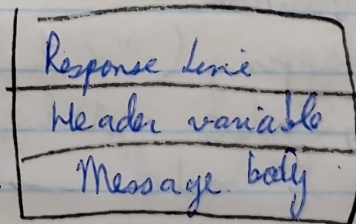 Response line
Header variable
Message body